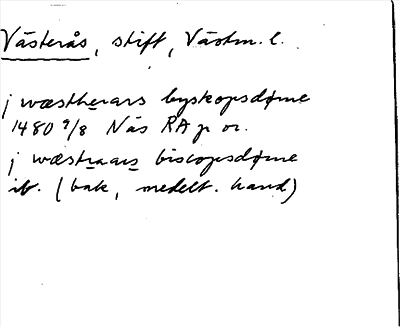 Västerås, stift, Västm. l.
j wæstherars byskopsdøme
1480 9/8 Näs RA p or.
j wæstraars biscopsdøme
ib. (bak, medelt. hand)